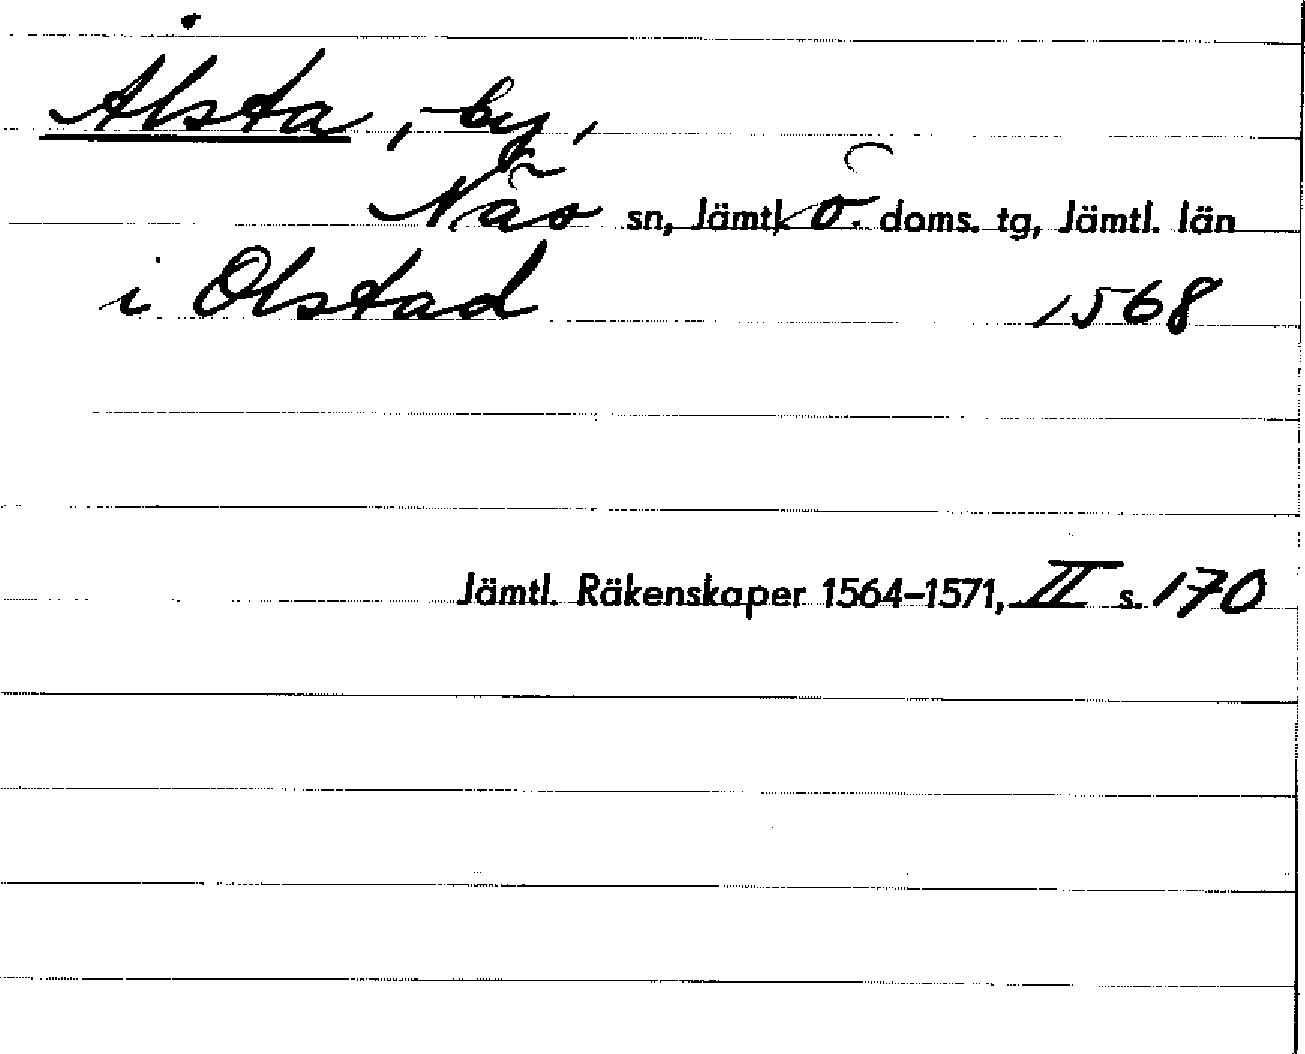 Ålsta, -by,
Näs sn, Jämtl. Ö. doms. tg, Jämtl. län
i Olstad 1568
Jämtl. Räkenskaper 1564–1571, II s. 170